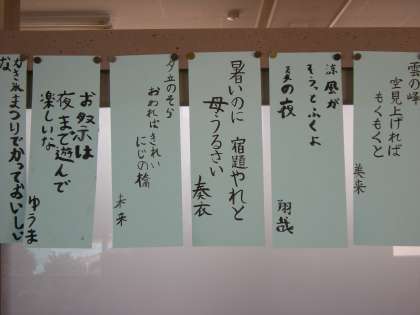 雲の峰
空見上げれば
もくもくと
美来
涼風が
そうっとふくよ
夏の夜
翔哉
暑いのに 宿題やれと
母うるさい
奏衣
夕立のそら
おわればきれい
にじの橋
未来
お祭は
夜まで遊んで
楽しいな
ゆうま
かき氷まつりでかっておいしい
な